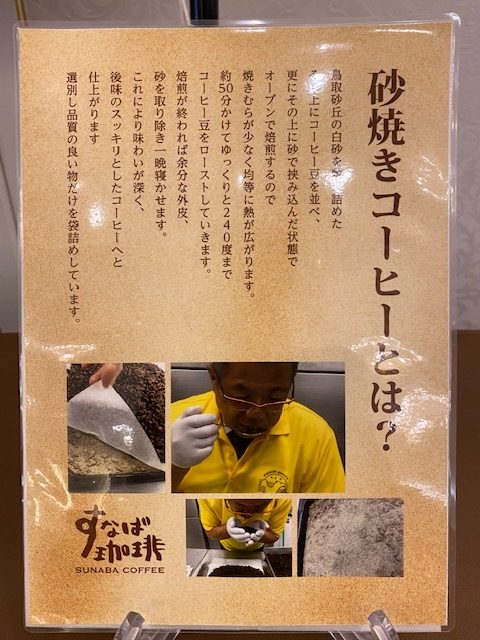 砂焼きコーヒーとは？
鳥取砂丘の白砂を 詰めた
上にコーヒー豆を並べ、
更にその上に砂で挟み込んだ状態で
オーブンで焙煎するので
焼きむらが少なく均等に熱が広がります。
約50分かけてゆっくりと240度まで
コーヒー豆をローストしていきます。
焙煎が終われば余分な外皮、
砂を取り除き一晩寝かせます。
これにより味わいが深く、
後味のスッキリとしたコーヒーへと
仕上がります
選別し品質の良い物だけを袋詰めしています。
すなば
珈琲
SUNABA COFFEE